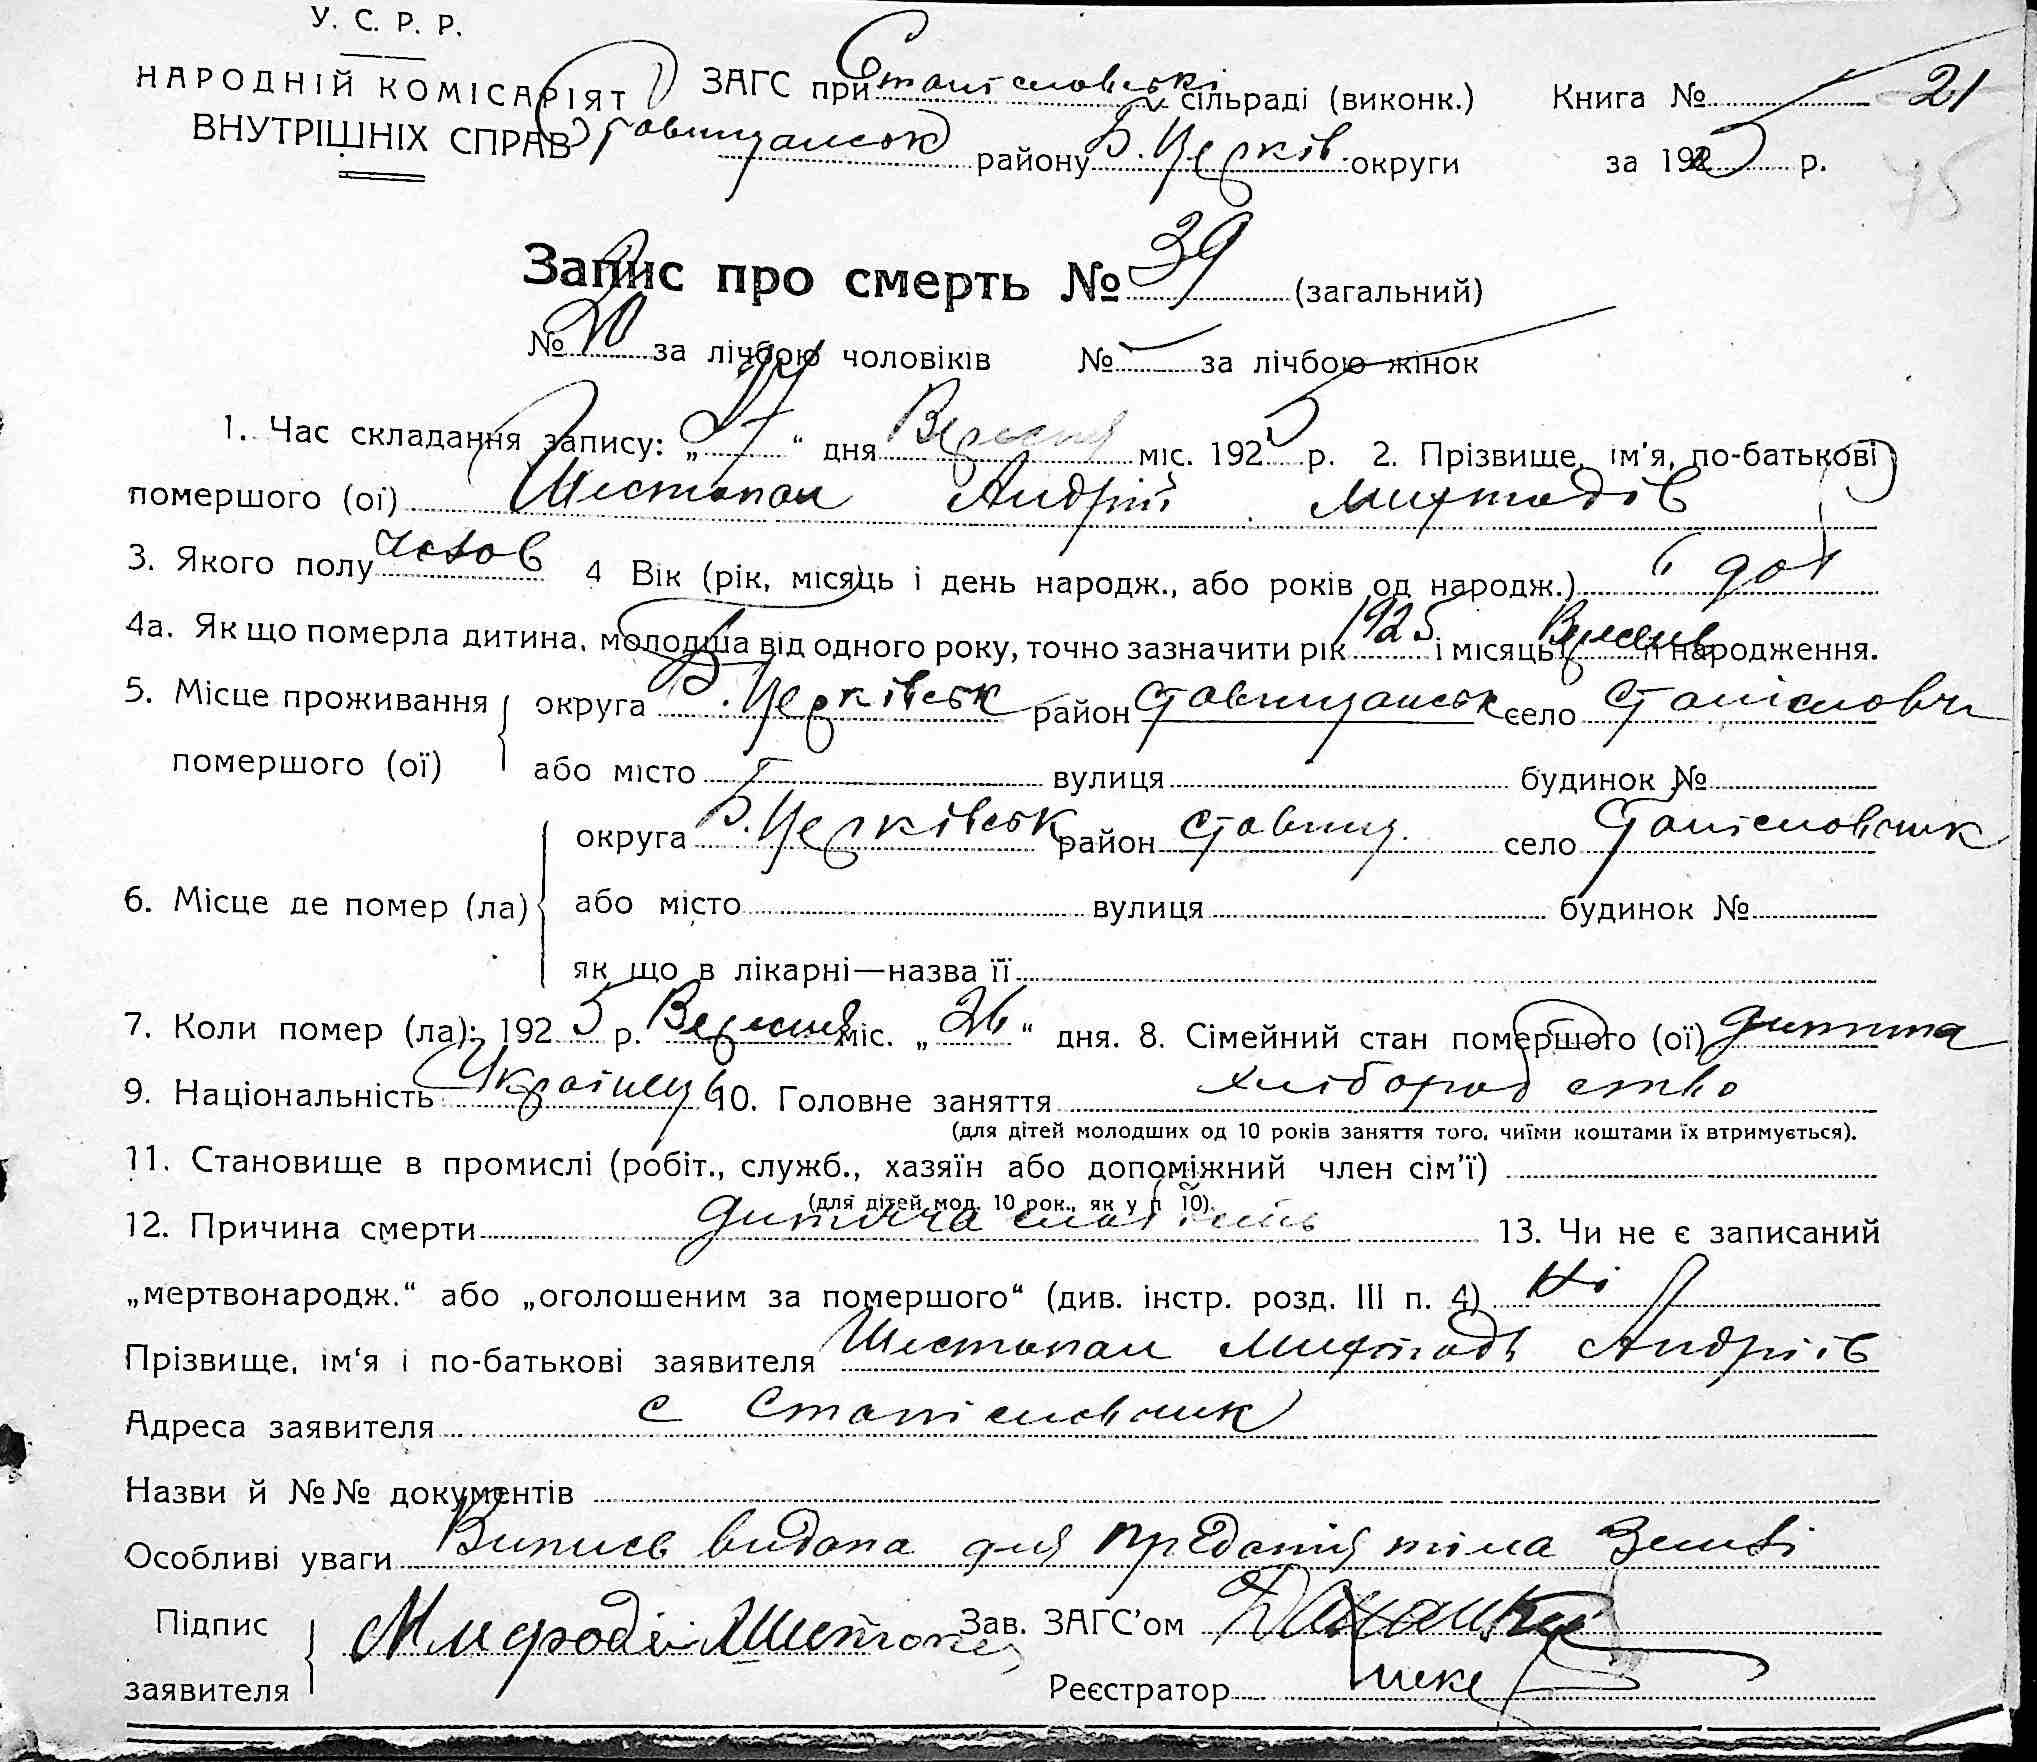 У. С. Р. Р.
НАРОДНІЙ КОМІСАРІЯТ
ВНУТРІШНІХ СПРАВ
ЗАГС при Станіславській сільраді (виконк.) Книга № 21
Ставищанськ району Б. Церків. округи за 1925 р.
75
Запис про смерть № 39 (загальний)
№ 20 за лічбою чоловіків № — за лічбою жінок
1. Час складання запису: „27“ дня Вересня міс. 1925 р. 2. Прізвище, ім'я, по-батькові
помершого (ої) Шестопал Андрій Мифтодів
3. Якого полу чолов 4 Вік (рік, місяць і день народж., або років од народж.)
4а. Як що померла дитина, молодша від одного року, точно зазначити рік 1925 і місяць її народження.
5. Місце проживання помершого (ої) округа Б. Церківськ район Ставищанськ село Станіславчи
або місто вулиця будинок №
6. Місце де помер (ла) округа Б. Церківськ район Ставищ. село Станіславчик
або місто вулиця будинок №
як що в лікарні—назва її
7. Коли помер (ла): 1925 р. Вересня міс. „26“ дня. 8. Сімейний стан помершого (ої) дитина
9. Національність Українець 10. Головне заняття хліборобство
(для дітей молодших од 10 років заняття того, чиїми коштами їх втримується).
11. Становище в промислі (робіт., служб., хазяїн або допоміжний член сім'ї)
(для дітей мод. 10 рок., як у п 10).
12. Причина смерти дитяча слабість 13. Чи не є записаний
„мертвонародж.“ або „оголошеним за помершого“ (див. інстр. розд. III п. 4) Ні
Прізвище, ім'я і по-батькові заявителя Шестопал Мифтодь Андріів
Адреса заявителя с Станіславчик
Назви й №№ документів
Особливі уваги Випись видана для преданія тіла Землі
Підпис заявителя Мифоді Шестопал Зав. ЗАГС'ом
Реєстратор